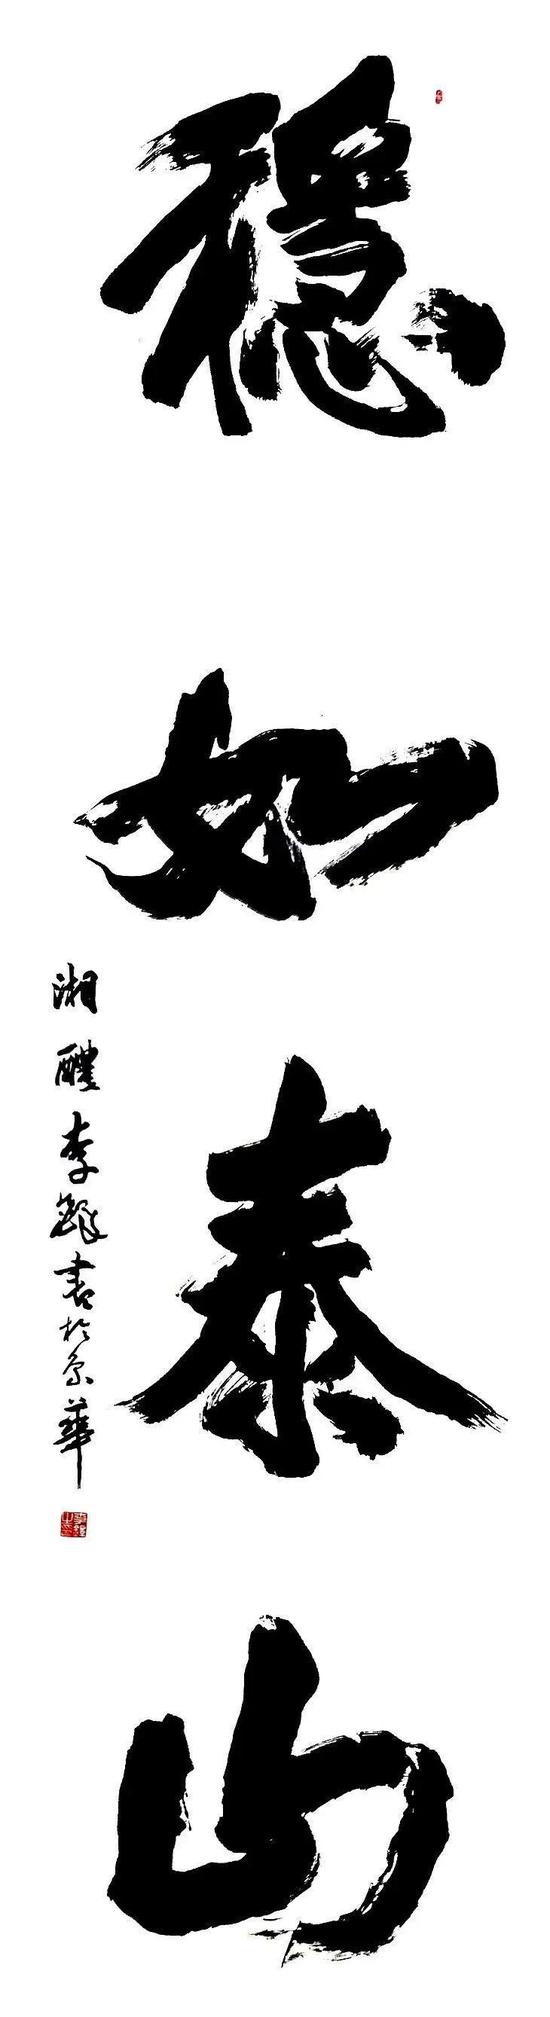 穩如泰山
湘醴李鐸書於京華